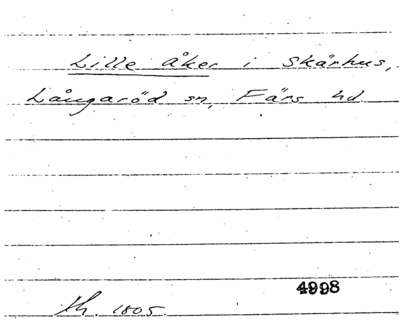 Lille åker i Skärhus,
Långaröd sn, Färs hd
4998
1805.